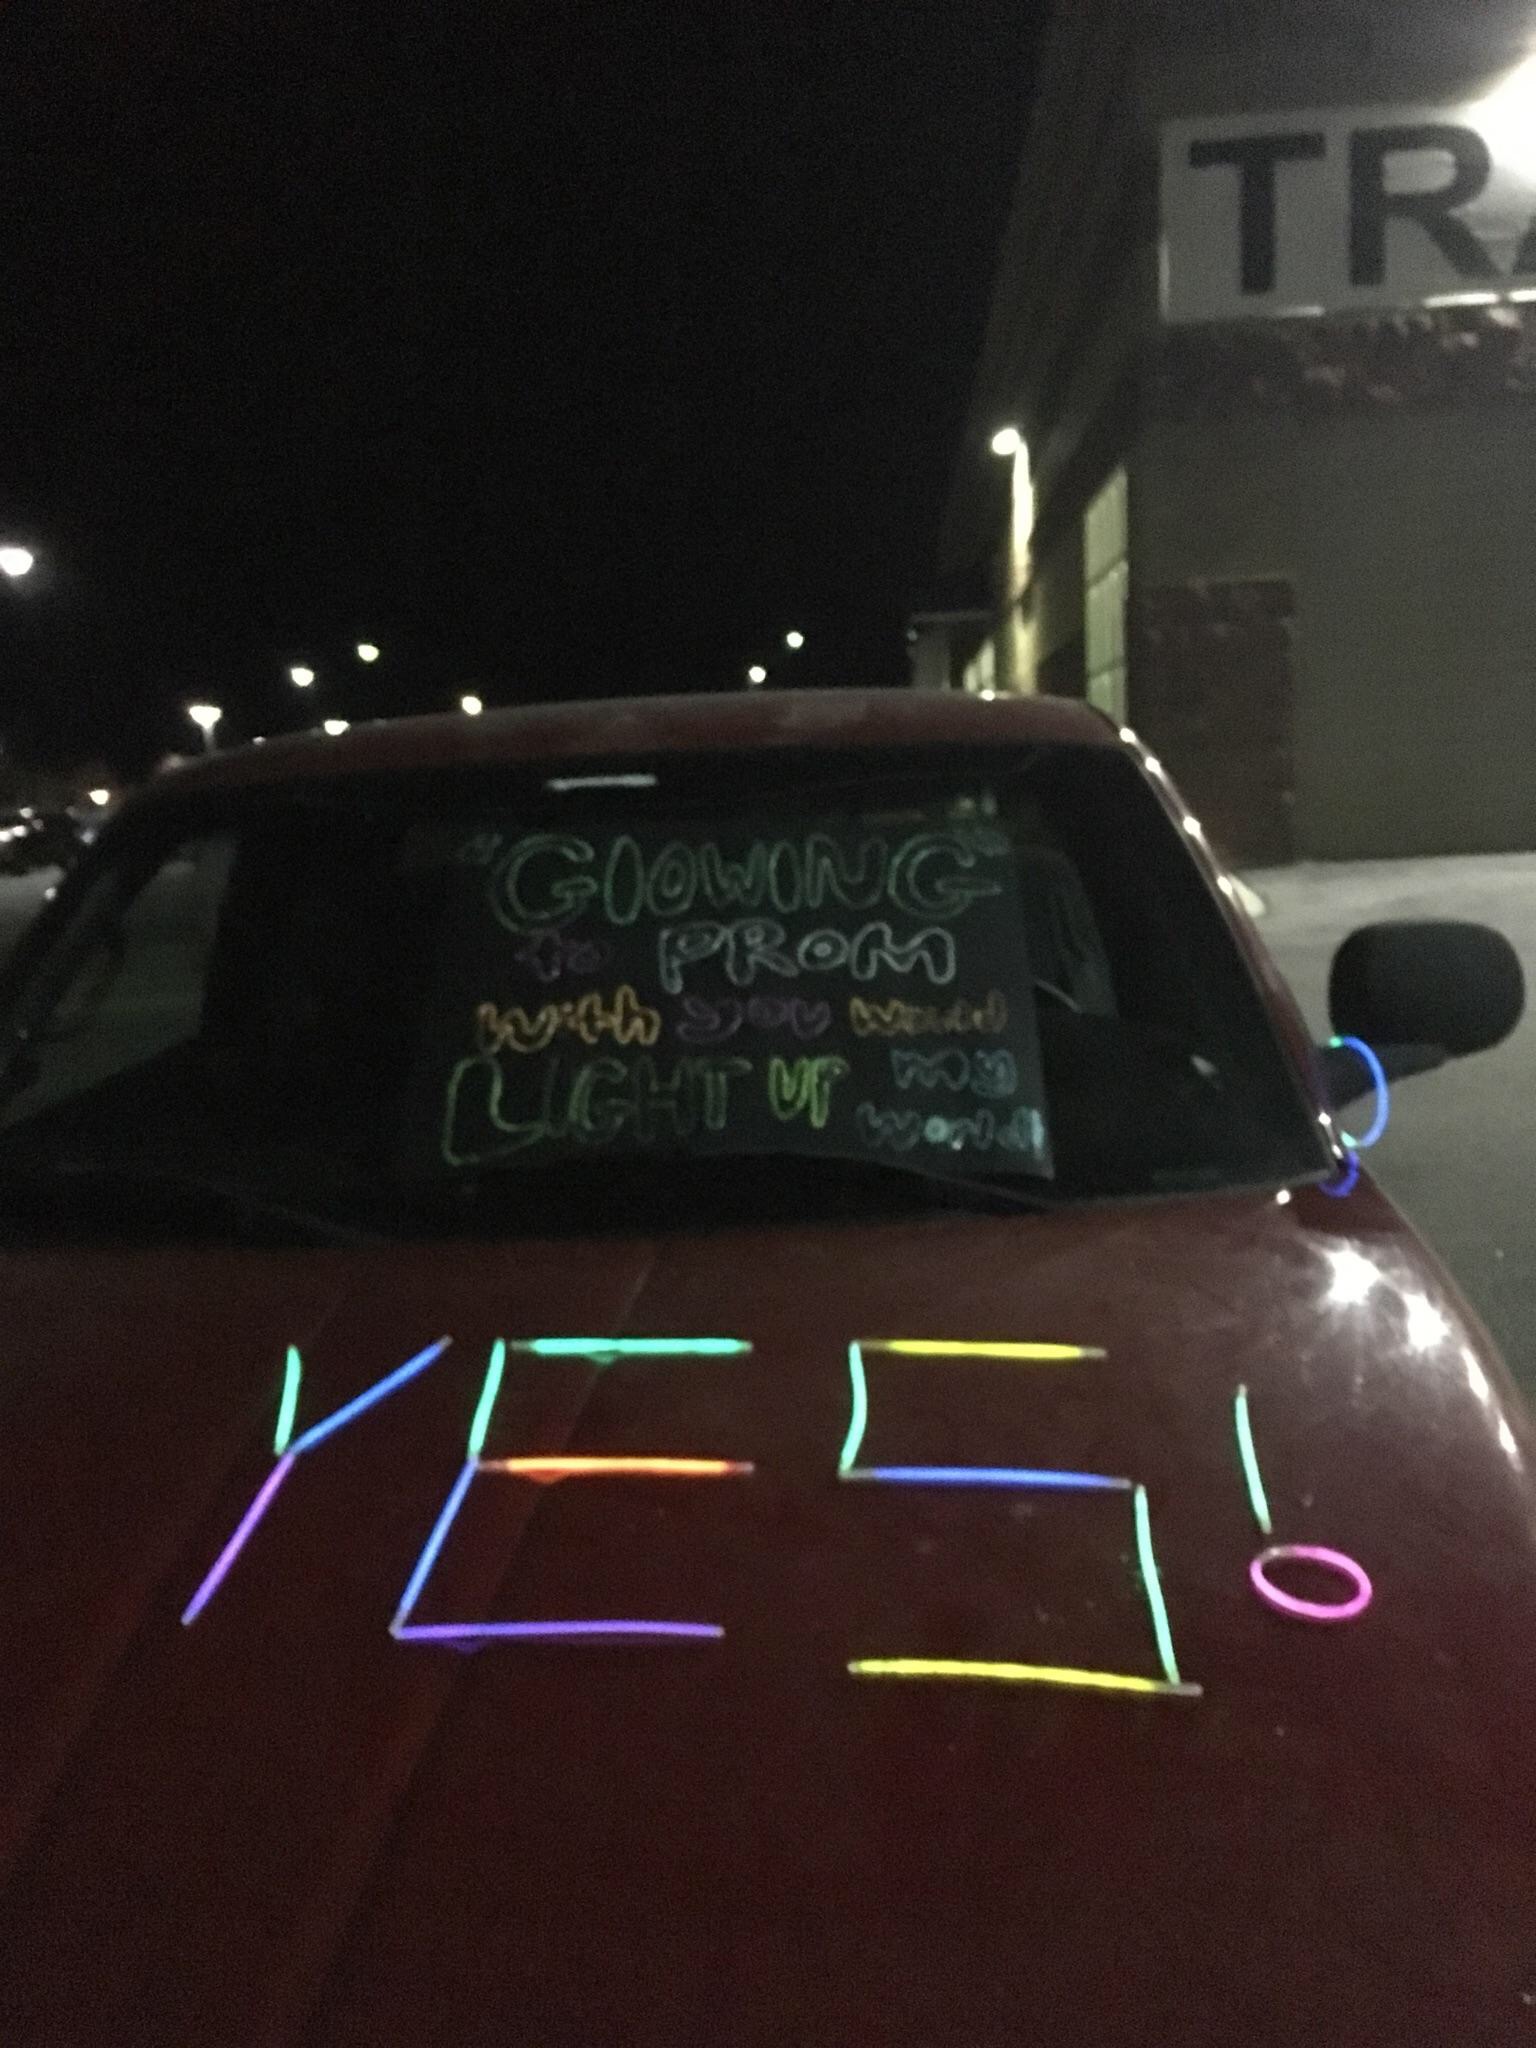 TRA
"GlOWING"
to PROM
with you would
LIGHT UP my
world!
YES!